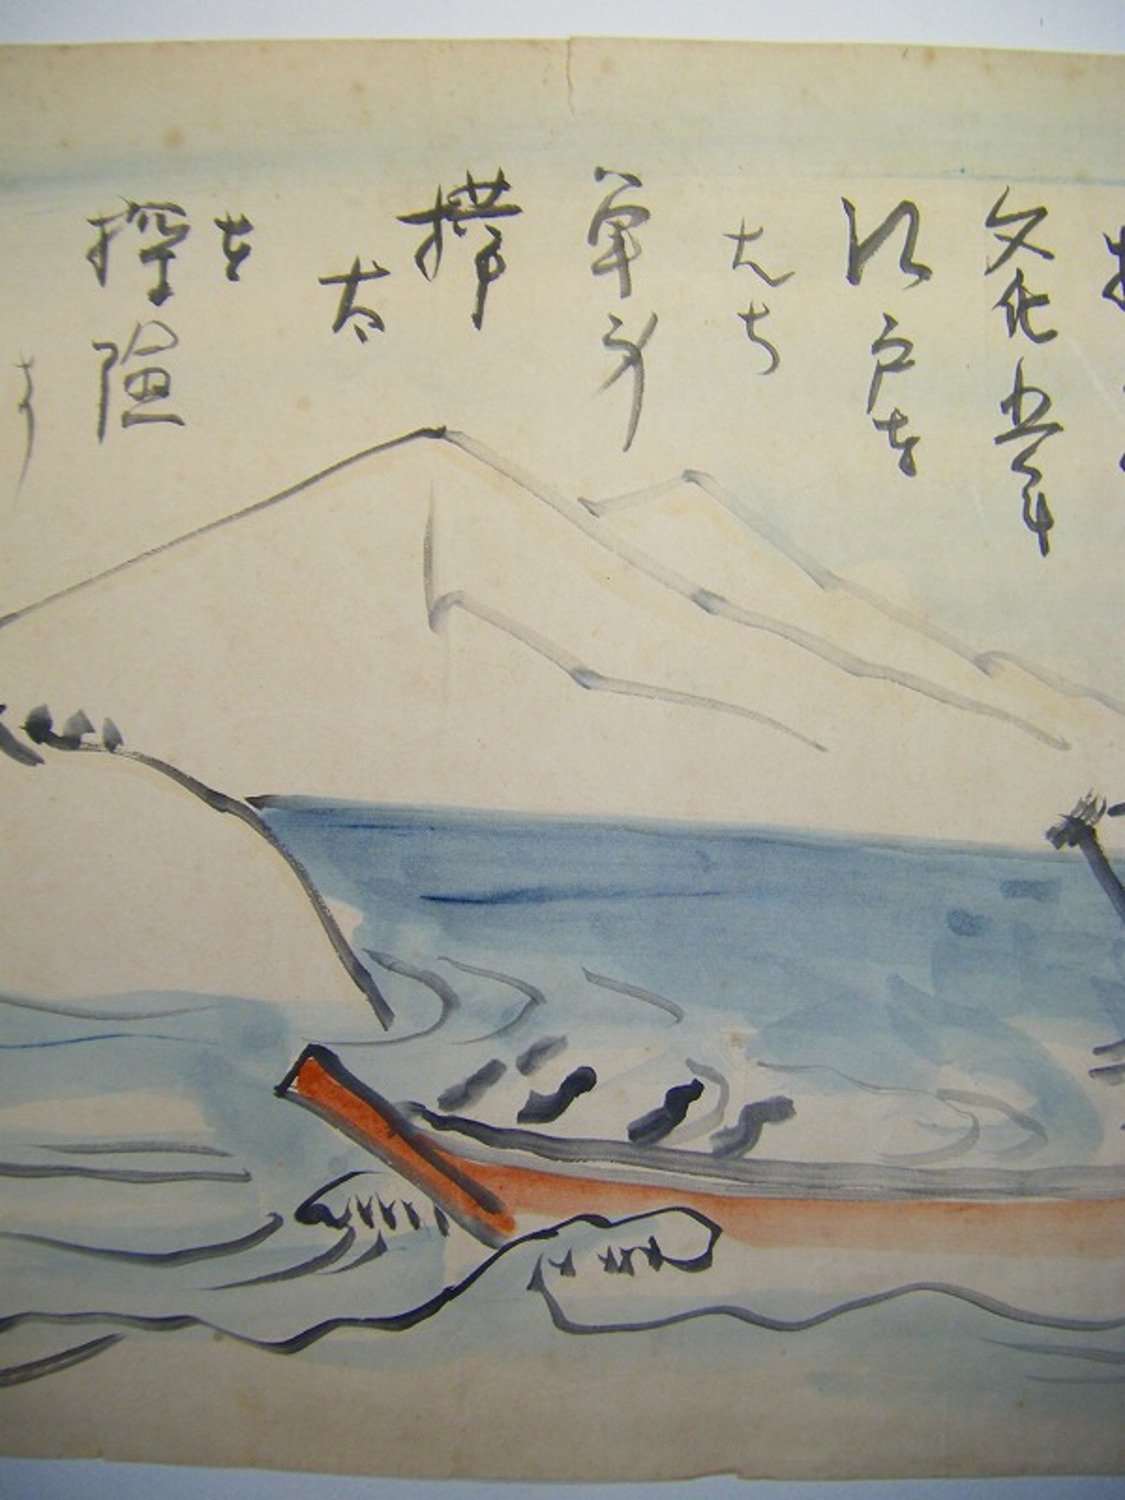 文化五年
江戸を
たち
単身
樺
太
を
探険